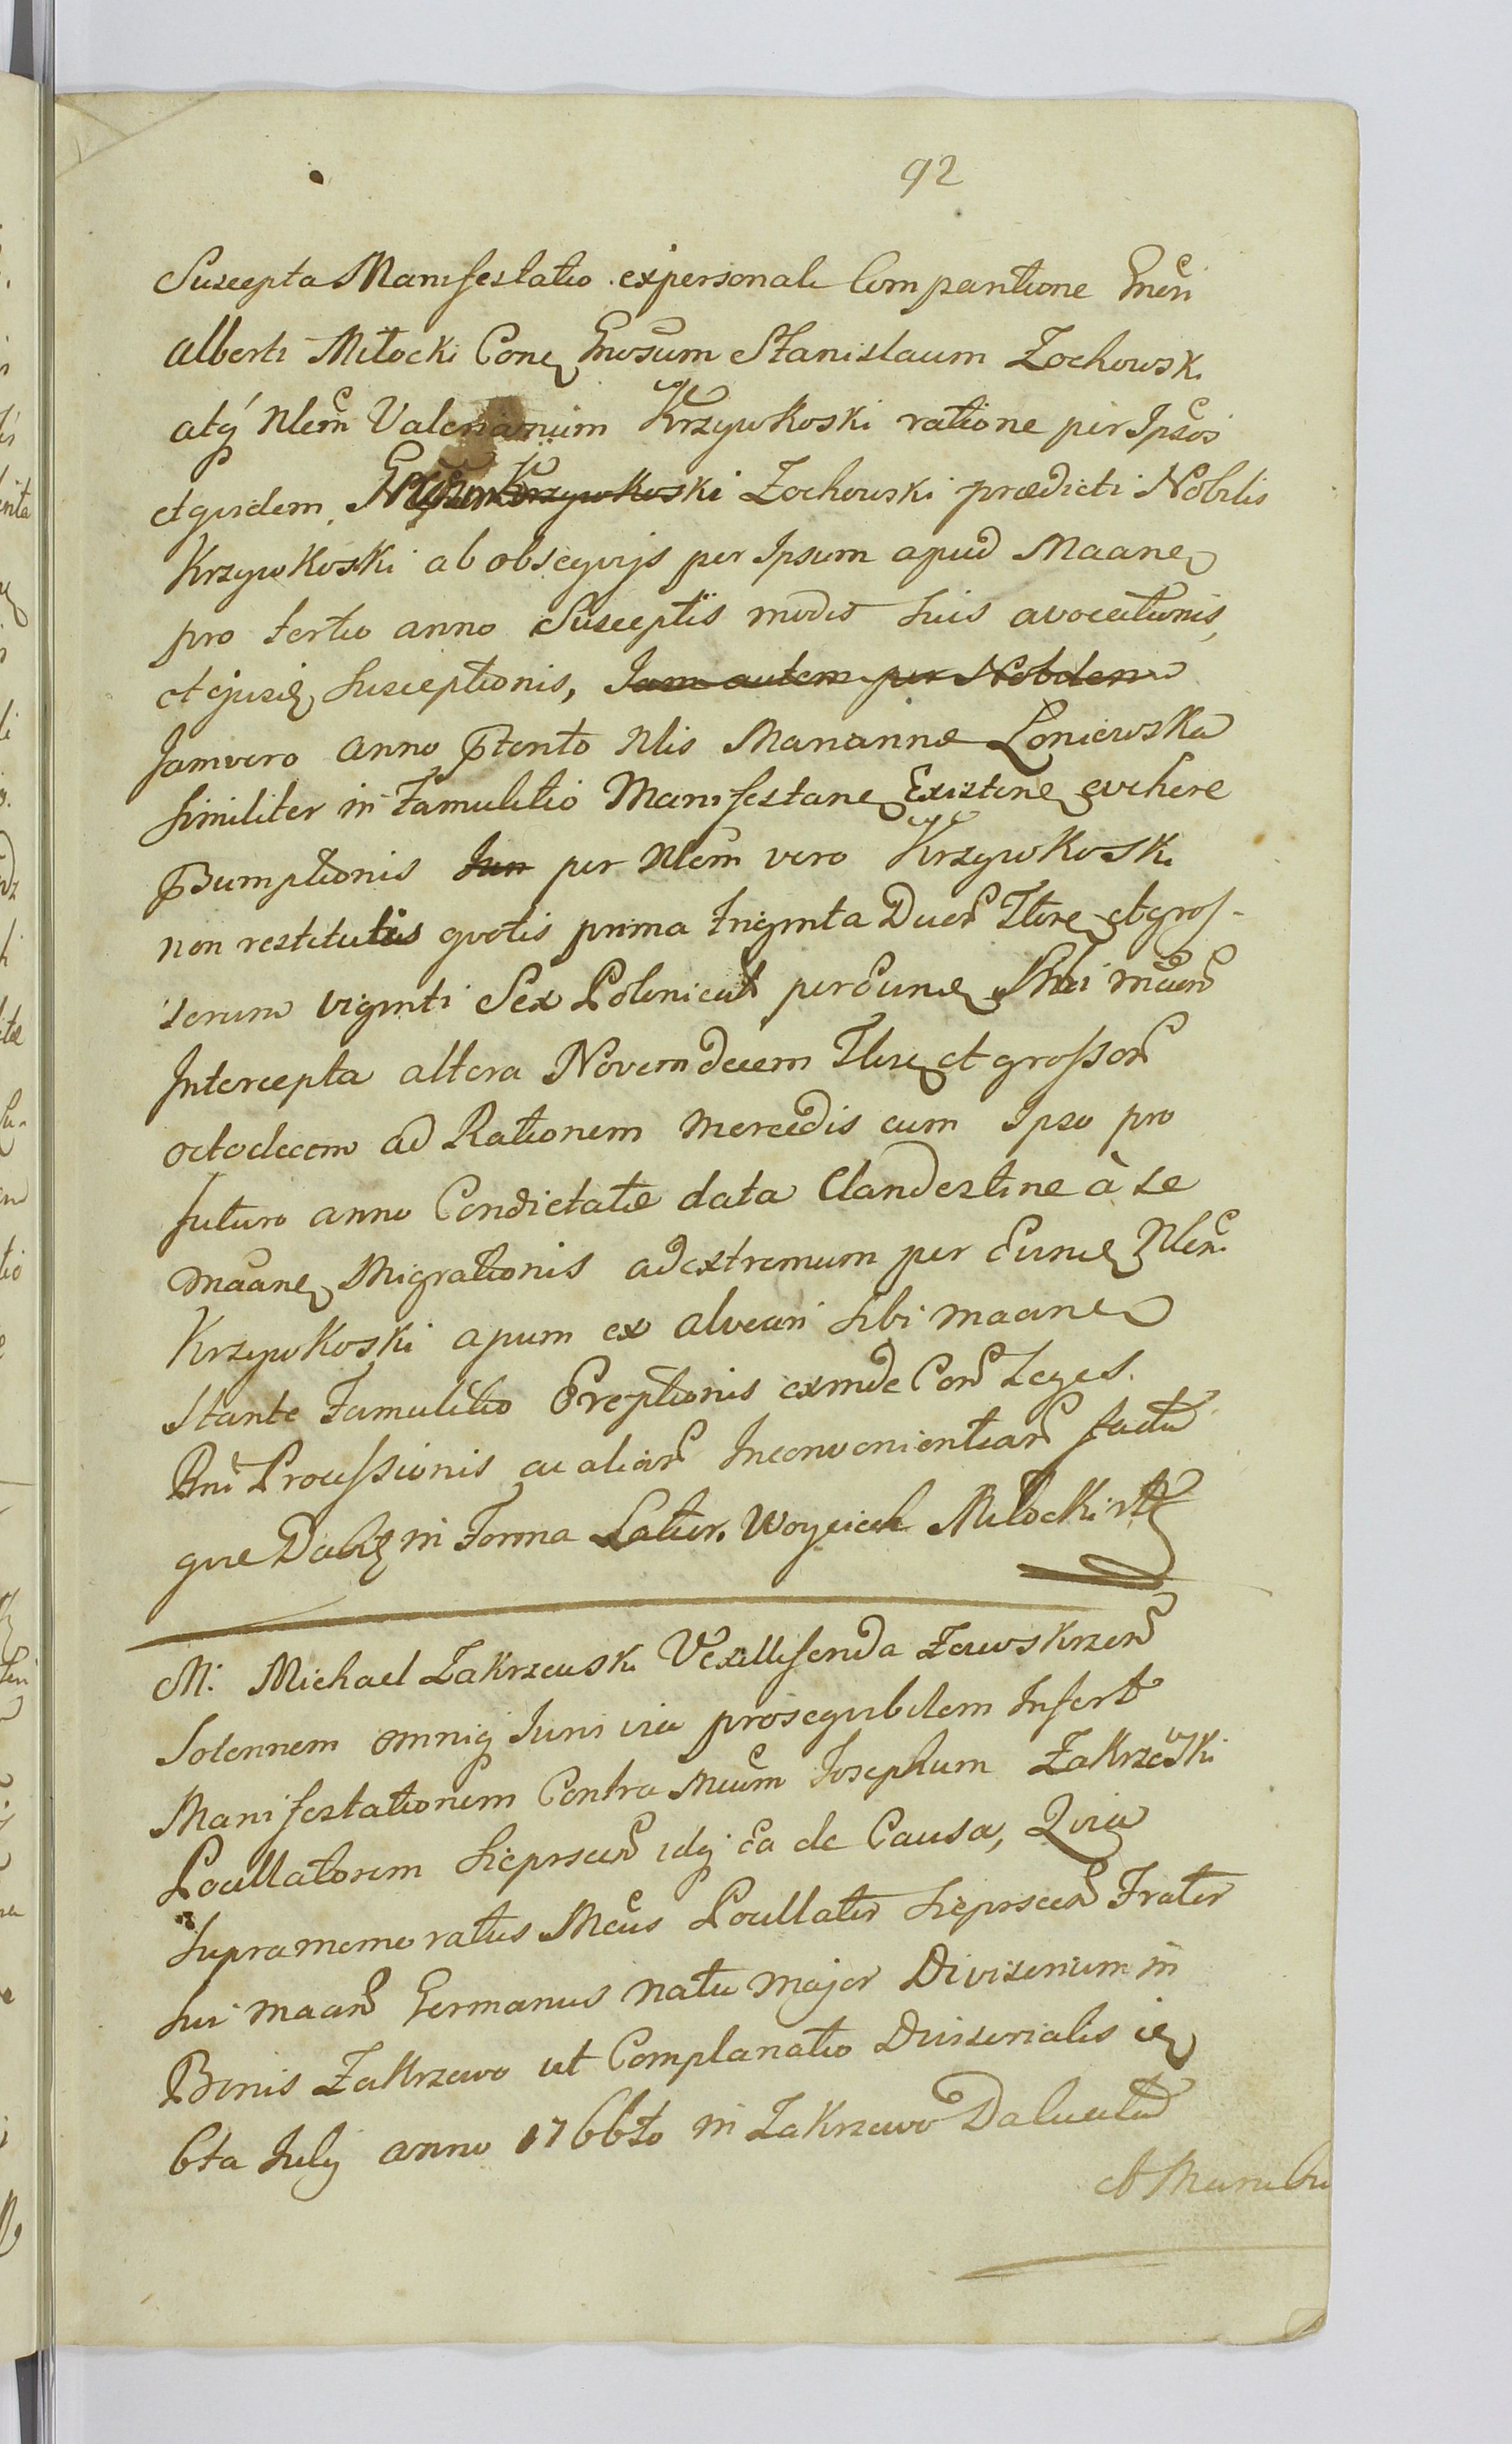 92
Suscepta Manifestatio ex personali Comparitione Gnēri
Alberti Miłocki Cone Gnosum Stanislaum Zochowski
atq Nlem Valerianum Krzywkoski ratione per Ipsos
et quidem Zochowski prædicti Nobilis
Krzywkoski ab obsequijs per Ipsum apud Maane
pro tertio anno Susceptis modis suis avocationis,
et ejusd susceptionis, Jam autem per Nobilem
Jamvero anno ptento Nlis Marianna Loniewska
similiter in Famulitio Manifestane Existene evehere
pSumptionis Jan per Nlem vero Krzywkoski
non restitutis quotis prima triginta Duor Tlre et gros-
sorum viginti Sex Polonical per Eund Sibi maan
Intercepta altera Novemdecem Tlre et grossor
octodecem ad Rationem mercedis cum Ipso pro
futuro anno Condictatæ data Clandestine à se
maane Migrationis ad extremum per Eund Nlem
Krzywkoski apum ex alveari sibi maane
stante Famulitio Ereptionis exinde Con Leges
Rni Processionis ac aliar Inconvenientiar factar
que Dabit in Forma Latior. Woyciech Miłocki
M: Michael Zakrzewski Vexilliferida Zawskrzen
Solennem omniq Juris via prosequibilem Infert
Manifestationem Contra Mcum Josephum Zakrzewski
Pocillatorem Sieprscen idq ea de Causa, Quia
supramemoratus Mcus Pocillator Sieprscen Frater
sui maan Germanus natu major Divisorium in
Bonis Zakrzewo ut Complanatio Divisorialis id
6ta July anno 1766to in Zakrzewo